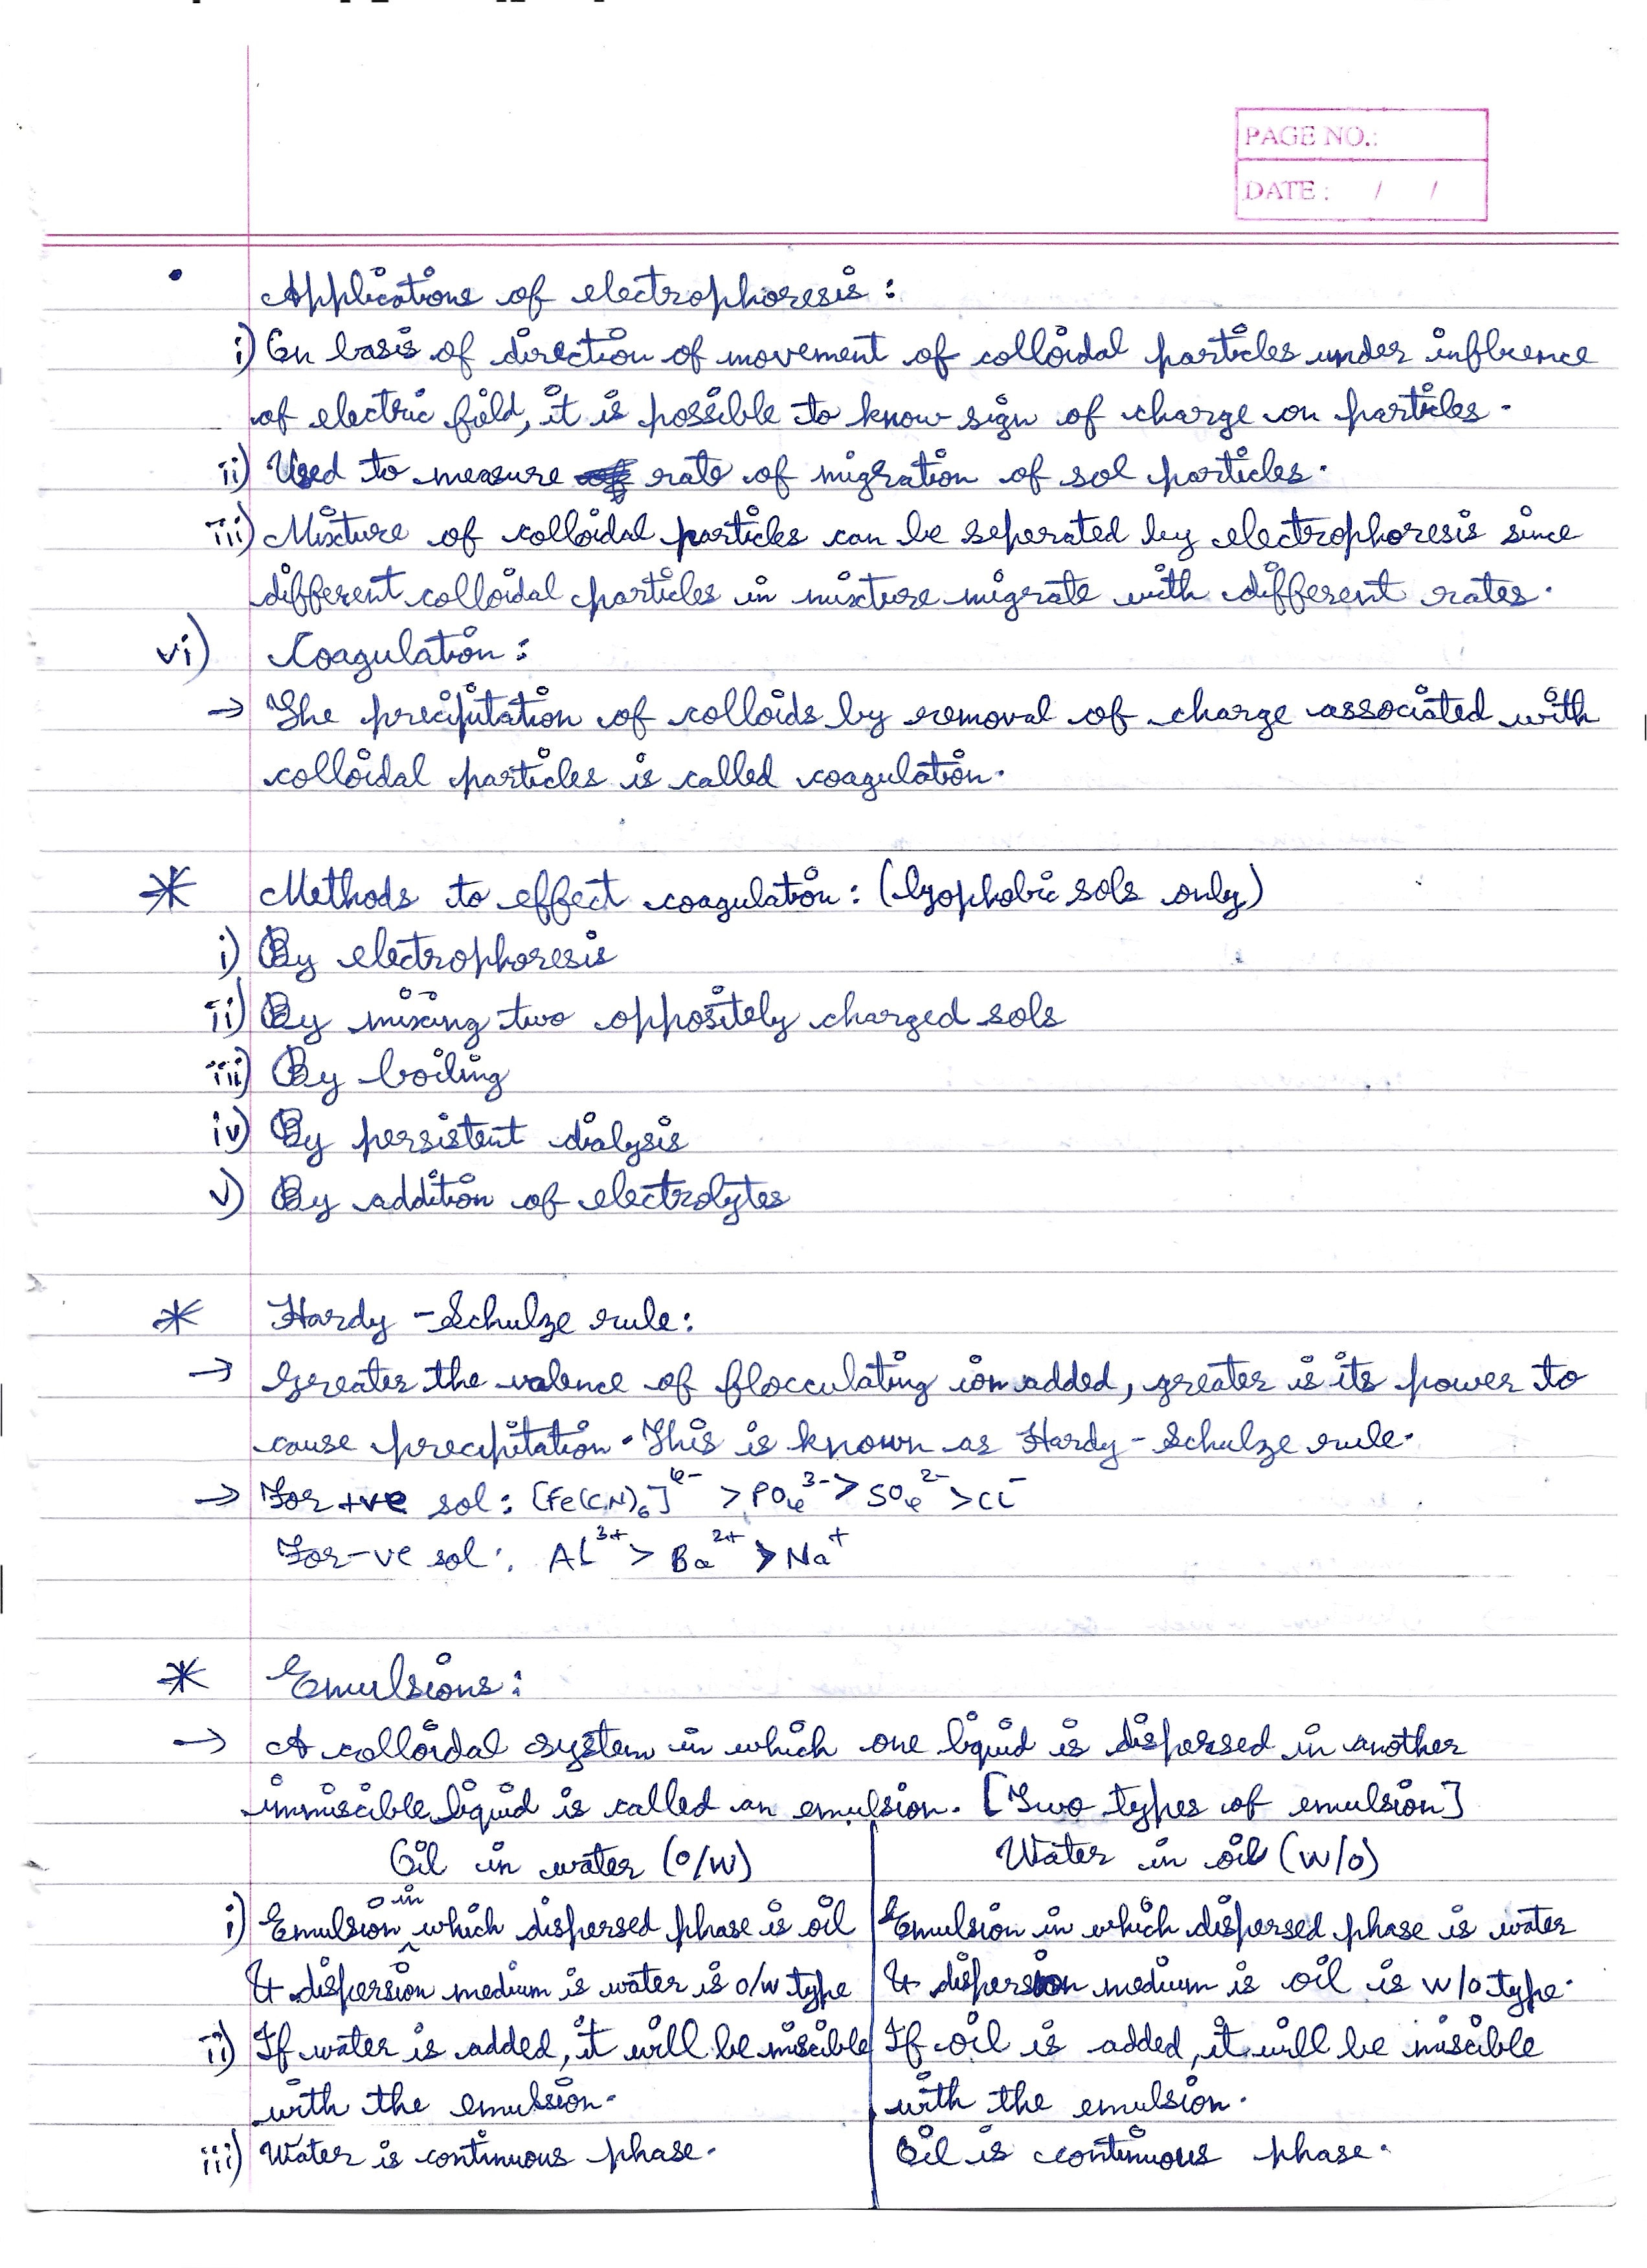 PAGE NO.:
DATE : / /
• Applications of electrophoresis :
i) On basis of direction of movement of colloidal particles under influence
of electric field, it is possible to know sign of charge on particles.
ii) Used to measure rate of migration of sol particles.
iii) Mixture of colloidal particles can be seperated by electrophoresis since
different colloidal particles in mixture migrate with different rates.
vi) Coagulation :
→ The precipitation of colloids by removal of charge associated with
colloidal particles is called coagulation.
* Methods to effect coagulation : (lyophobic sols only)
i) By electrophoresis
ii) By mixing two oppositely charged sols
iii) By boiling
iv) By persistent dialysis
v) By addition of electrolytes
* Hardy - Schulze rule :
→ Greater the valence of flocculating ion added, greater is its power to
cause precipitation. This is known as Hardy - Schulze rule.
→ For +ve sol : [Fe(CN)₆]⁴⁻ > PO₄³⁻ > SO₄²⁻ > Cl⁻
For -ve sol : Al³⁺ > Ba²⁺ > Na⁺
* Emulsions :
→ A colloidal system in which one liquid is dispersed in another
immiscible liquid is called an emulsion. [Two types of emulsion]
Oil in water (O/W) Water in oil (W/O)
i) Emulsion in which dispersed phase is oil Emulsion in which dispersed phase is water
& dispersion medium is water is O/W type & dispersion medium is oil is W/O type.
ii) If water is added, it will be miscible If oil is added, it will be miscible
with the emulsion. with the emulsion.
iii) Water is continuous phase. Oil is continuous phase.